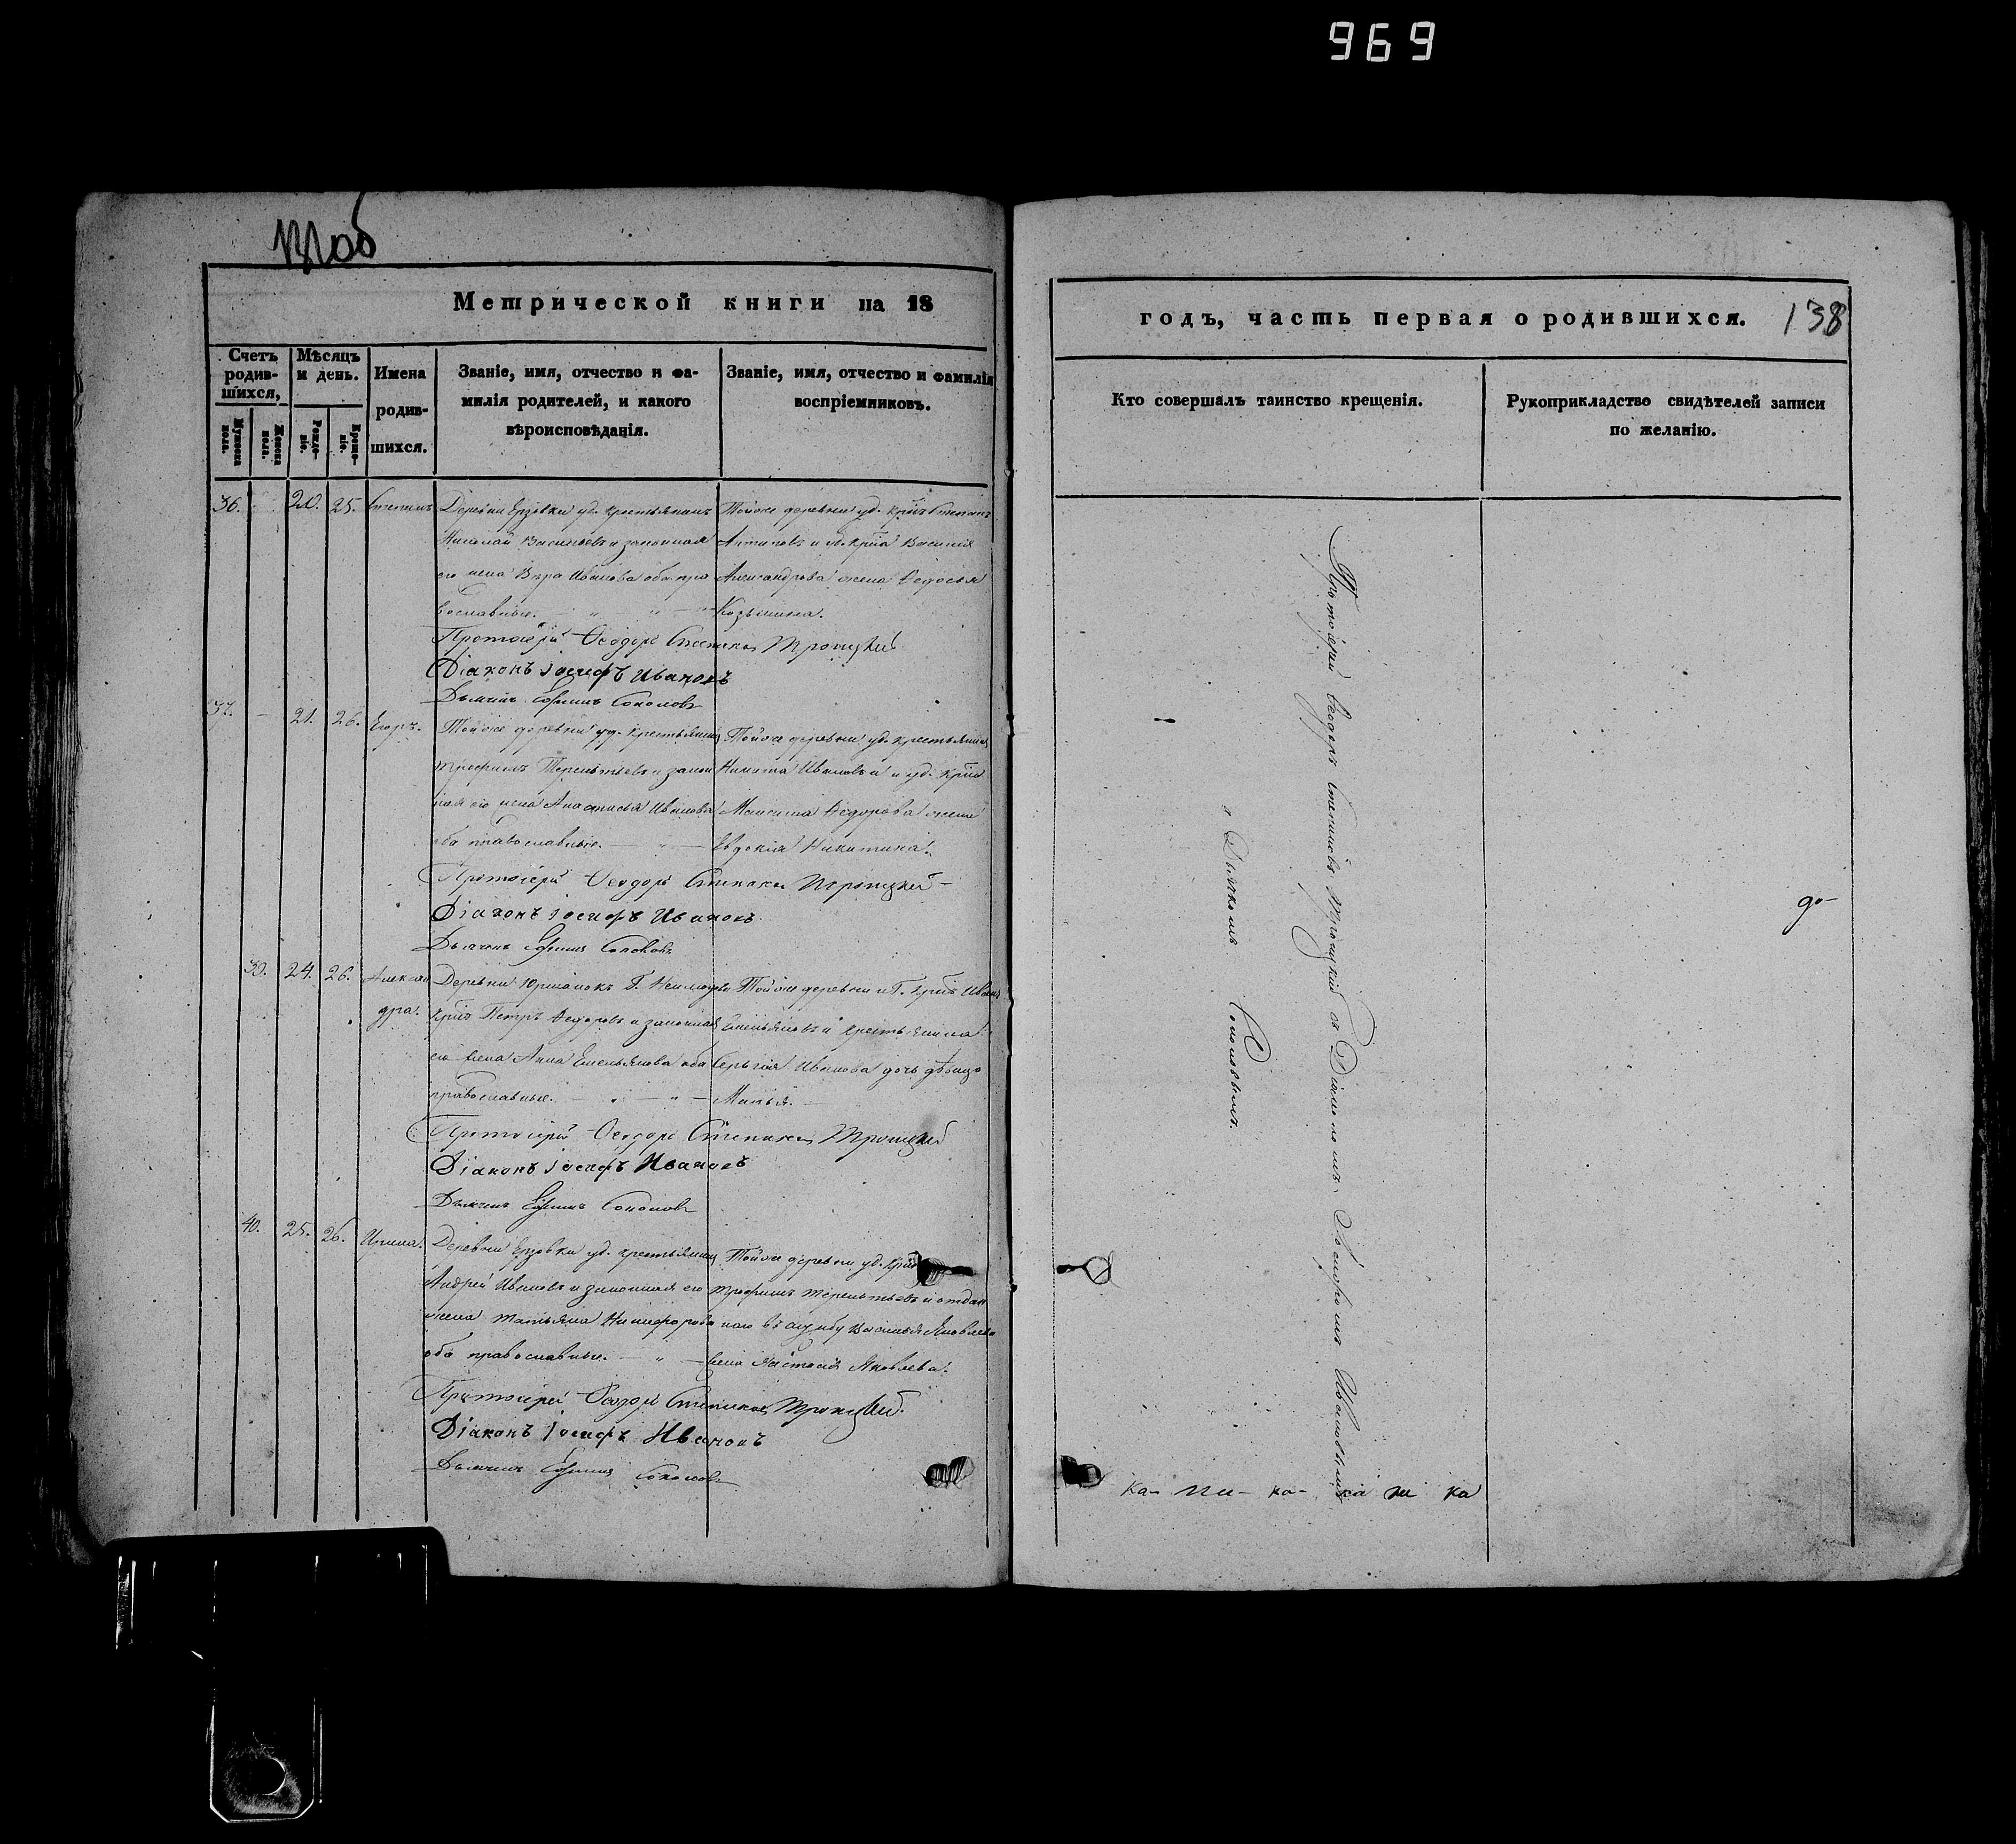 969
Метрической книги на 18
Счетъ родив-шихся,
Мѣсяцъ и день.
Имена родив-шихся.
Званіе, имя, отчество и фа-
милія родителей, и какого
вѣроисповѣданія.
Званіе, имя, отчество и фамилія
воспріемниковъ.
Мужеска пола.
Женска пола.
Рожде-ніе.
Креще-ніе.
36. 20. 25. Степанъ
Деревни Ерзовки уд. крестьянинъ
Николай Васильевъ и законная
его жена Вѣра Иванова оба пра
вославные.
Тойже деревни уд. крнъ Степанъ
Антиповъ и уд. крна Василія
Александрова жена Ѳедосья
Козьмина.
Протоіерей Ѳеодоръ Степановъ Троицкій
Діаконъ Іосифъ Ивановъ
Дьячекъ Ефимъ Соколовъ
37. 21. 26. Егоръ.
Тойже деревни уд. крестьянинъ
Трофимъ Терентьевъ и закон
ная его жена Анастасья Иванова
оба православные.
Тойже деревни уд. крестьянинъ
Никита Ивановъ и уд. крна
Максима Ѳедорова жена
Евдокія Никитина.
Протоіерей Ѳеодоръ Степановъ Троицкій
Діаконъ Іосифъ Ивановъ
Дьячекъ Ефимъ Соколовъ
39. 24. 26. Алексан
дра.
Деревни
крнъ Петръ Ѳедоровъ и законная
его жена Анна Емельянова оба
православные.
Тойже деревни и Г. крнъ Иванъ
Емельяновъ и крестьянина
Сергѣя Иванова дочь дѣвица
Марья.
Протоіерей Ѳеодоръ Степановъ Троицкій
Діаконъ Іосифъ Ивановъ
Дьячекъ Ефимъ Соколовъ
40. 25. 26. Ирина.
Деревни Ерзовки уд. крестьянинъ
Андрей Ивановъ и законная его
жена Татьяна Никифорова
оба православные.
Тойже деревни уд. крнъ
Трофимъ Терентьевъ и отдан
наго въ службу Василья Яковлева
жена Яковлева.
Протоіерей Ѳеодоръ Степановъ Троицкій.
Діаконъ Іосифъ Ивановъ
Дьячекъ Ефимъ Соколовъ
годъ, часть первая о родившихся. 138
Кто совершалъ таинство крещенія.
Рукоприкладство свидѣтелей записи
по желанію.
Протоіерей Ѳеодоръ Степановъ Троицкій съ Діакономъ Іосифомъ Ивановымъ
и Дьячкомъ Соколовымъ.
до-